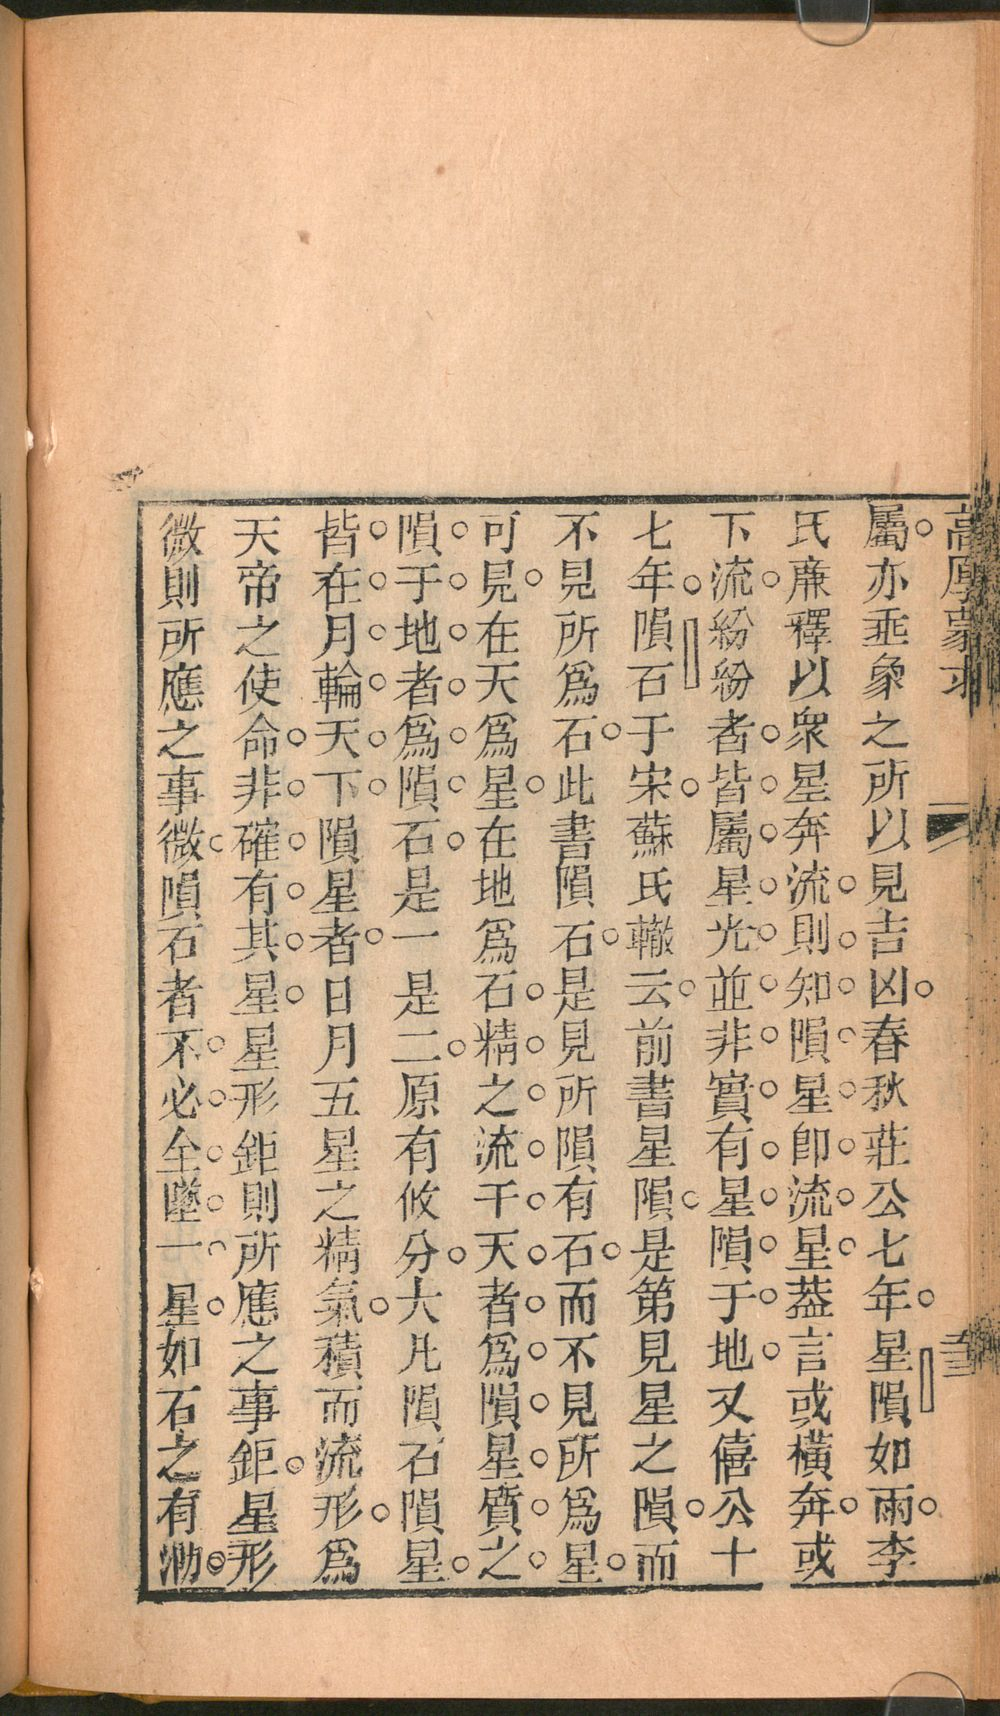 高厚蒙求
屬亦垂象之所以見吉凶春秋莊公七年星隕如雨李
氏廉釋以衆星奔流則知隕星卽流星葢言或橫奔或
下流紛紛者皆屬星光並非實有星隕于地又僖公十
七年隕石于宋蘇氏轍云前書星隕是第見星之隕而
不見所爲石此書隕石是見所隕有石而不見所爲星
可見在天爲星在地爲石精之流干天者爲隕星質之
隕于地者爲隕石是一是二原有攸分大凡隕石隕星
皆在月輪天下隕星者日月五星之精氣積而流形爲
天帝之使命非確有其星星形鉅則所應之事鉅星形
微則所應之事微隕石者不必全墜一星如石之有泐